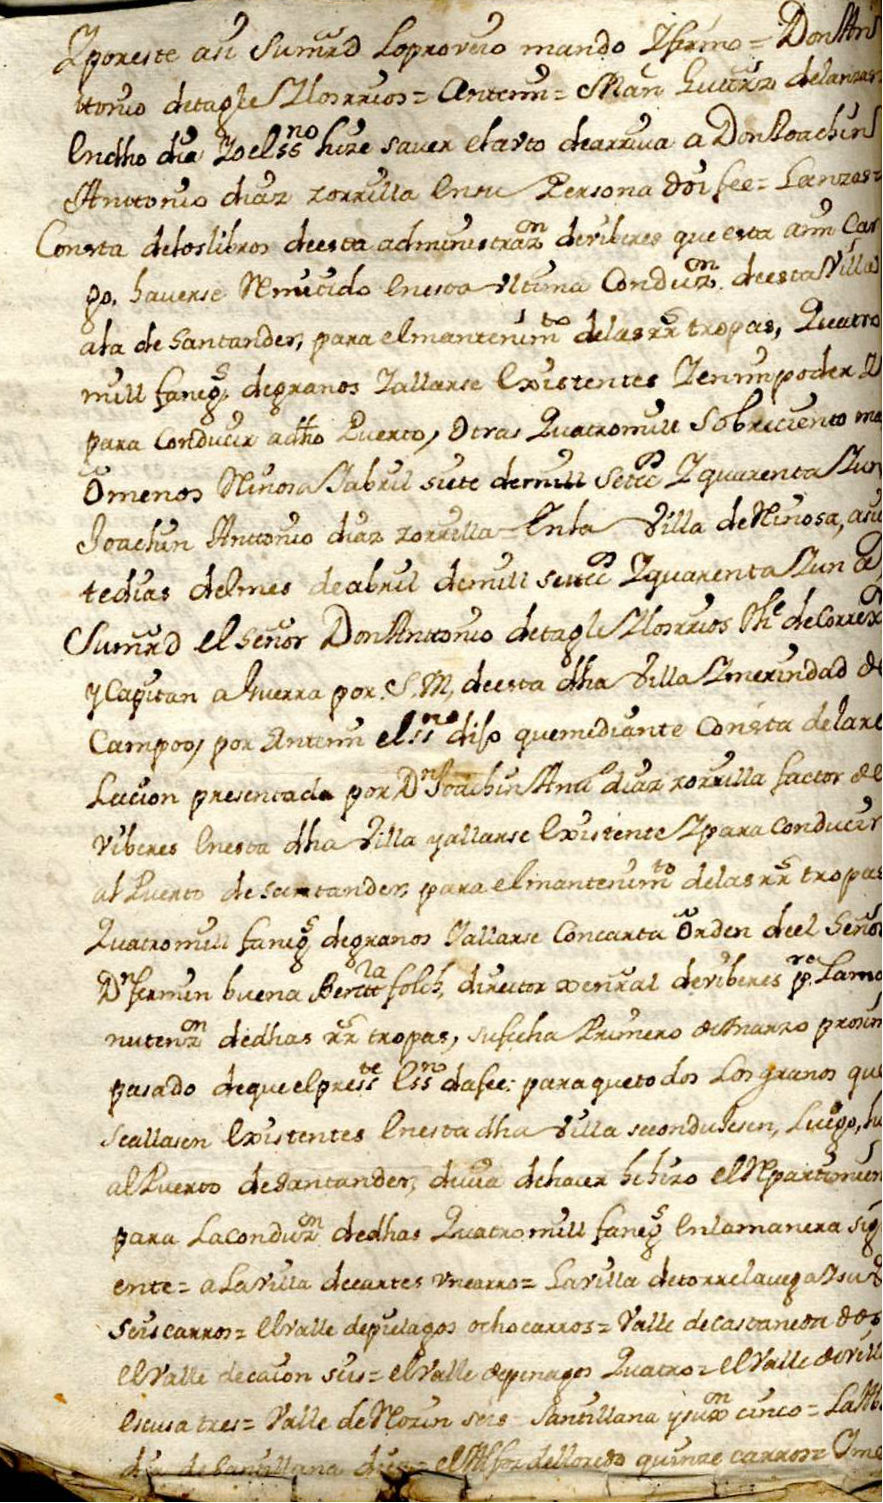 Y por este asi Sumrd lo proveio mando Y firmo = Don An
ttonio de tagle Y llos rrios = Antemi = Man Gutirrz de lanzas
En dho dia Yo el ssno hize saver el auto de arriva a Don Joachin
Anttonio diaz zorrilla en su Persona doi fee = Lanzas =
Consta de los libros de esta administrazon de viberes que esta a mi Car
go. haverse Remitido en esta Ultima Conduzon. de esta Villa
a la de Santander, para el mantenimto de las rrs tropas, Quatro
mill fanegs de granos Y allarse Existentes Y en mi poder Y
para Conducir a dho Puerto, otras Quatro mill Sobre ciento ma
o menos Reinosa Y abril siete de mill settcos Y quarenta Y un
Joachin Anttonio diaz zorrilla = En la Villa de Reinosa, a sie
te dias del mes de abril de mill settcos Y quarenta Y un a
Sumrd el Señor Don Anttonio de tagle Y llos rrios The de Correx
y Capitan a Guerra por S. M, de esta dha Villa Y merindad de
Campoo, por Antemi el ssno diJo que mediante Consta de la re
lacion presentada por Dn Joachin Anto diaz zorrilla factor de
viberes en esta dha Villa y allarse Existente Y para Conducir
al Puerto de Santander, para el mantenimto de las rrs tropas
Quatro mill fanegs de granos Y allarse Con carta Orden de el Señor
Dn fermin buena folch, director xenral de viberes pre. La ma
nutenzon de dhas rrs tropas, su fecha Primero de Marzo proxim
pasado de que el presste Essno da fee: para que todos Los granos que
se allasen Existentes en esta dha Villa se conduJesen, Luego,
al Puerto de Santander, devia de hacer he hizo el Repartimien
para La conduzon de dhas Quatro mill fanegs En la manera sig
ente = a La Villa de cartes Un carro = La Villa de torrelavega Y su
Seis carros = El Valle de pielagos ocho carros = Valle de castaneda dos
El Valle de caion seis = el Valle de penagos Quatro = el Valle de Vill
Escusa tres = Valle de Rozin seis = Santillana y su xon cinco = La Ab
dia de Santillana diez = el Alfoz de lloredo quinze carros =